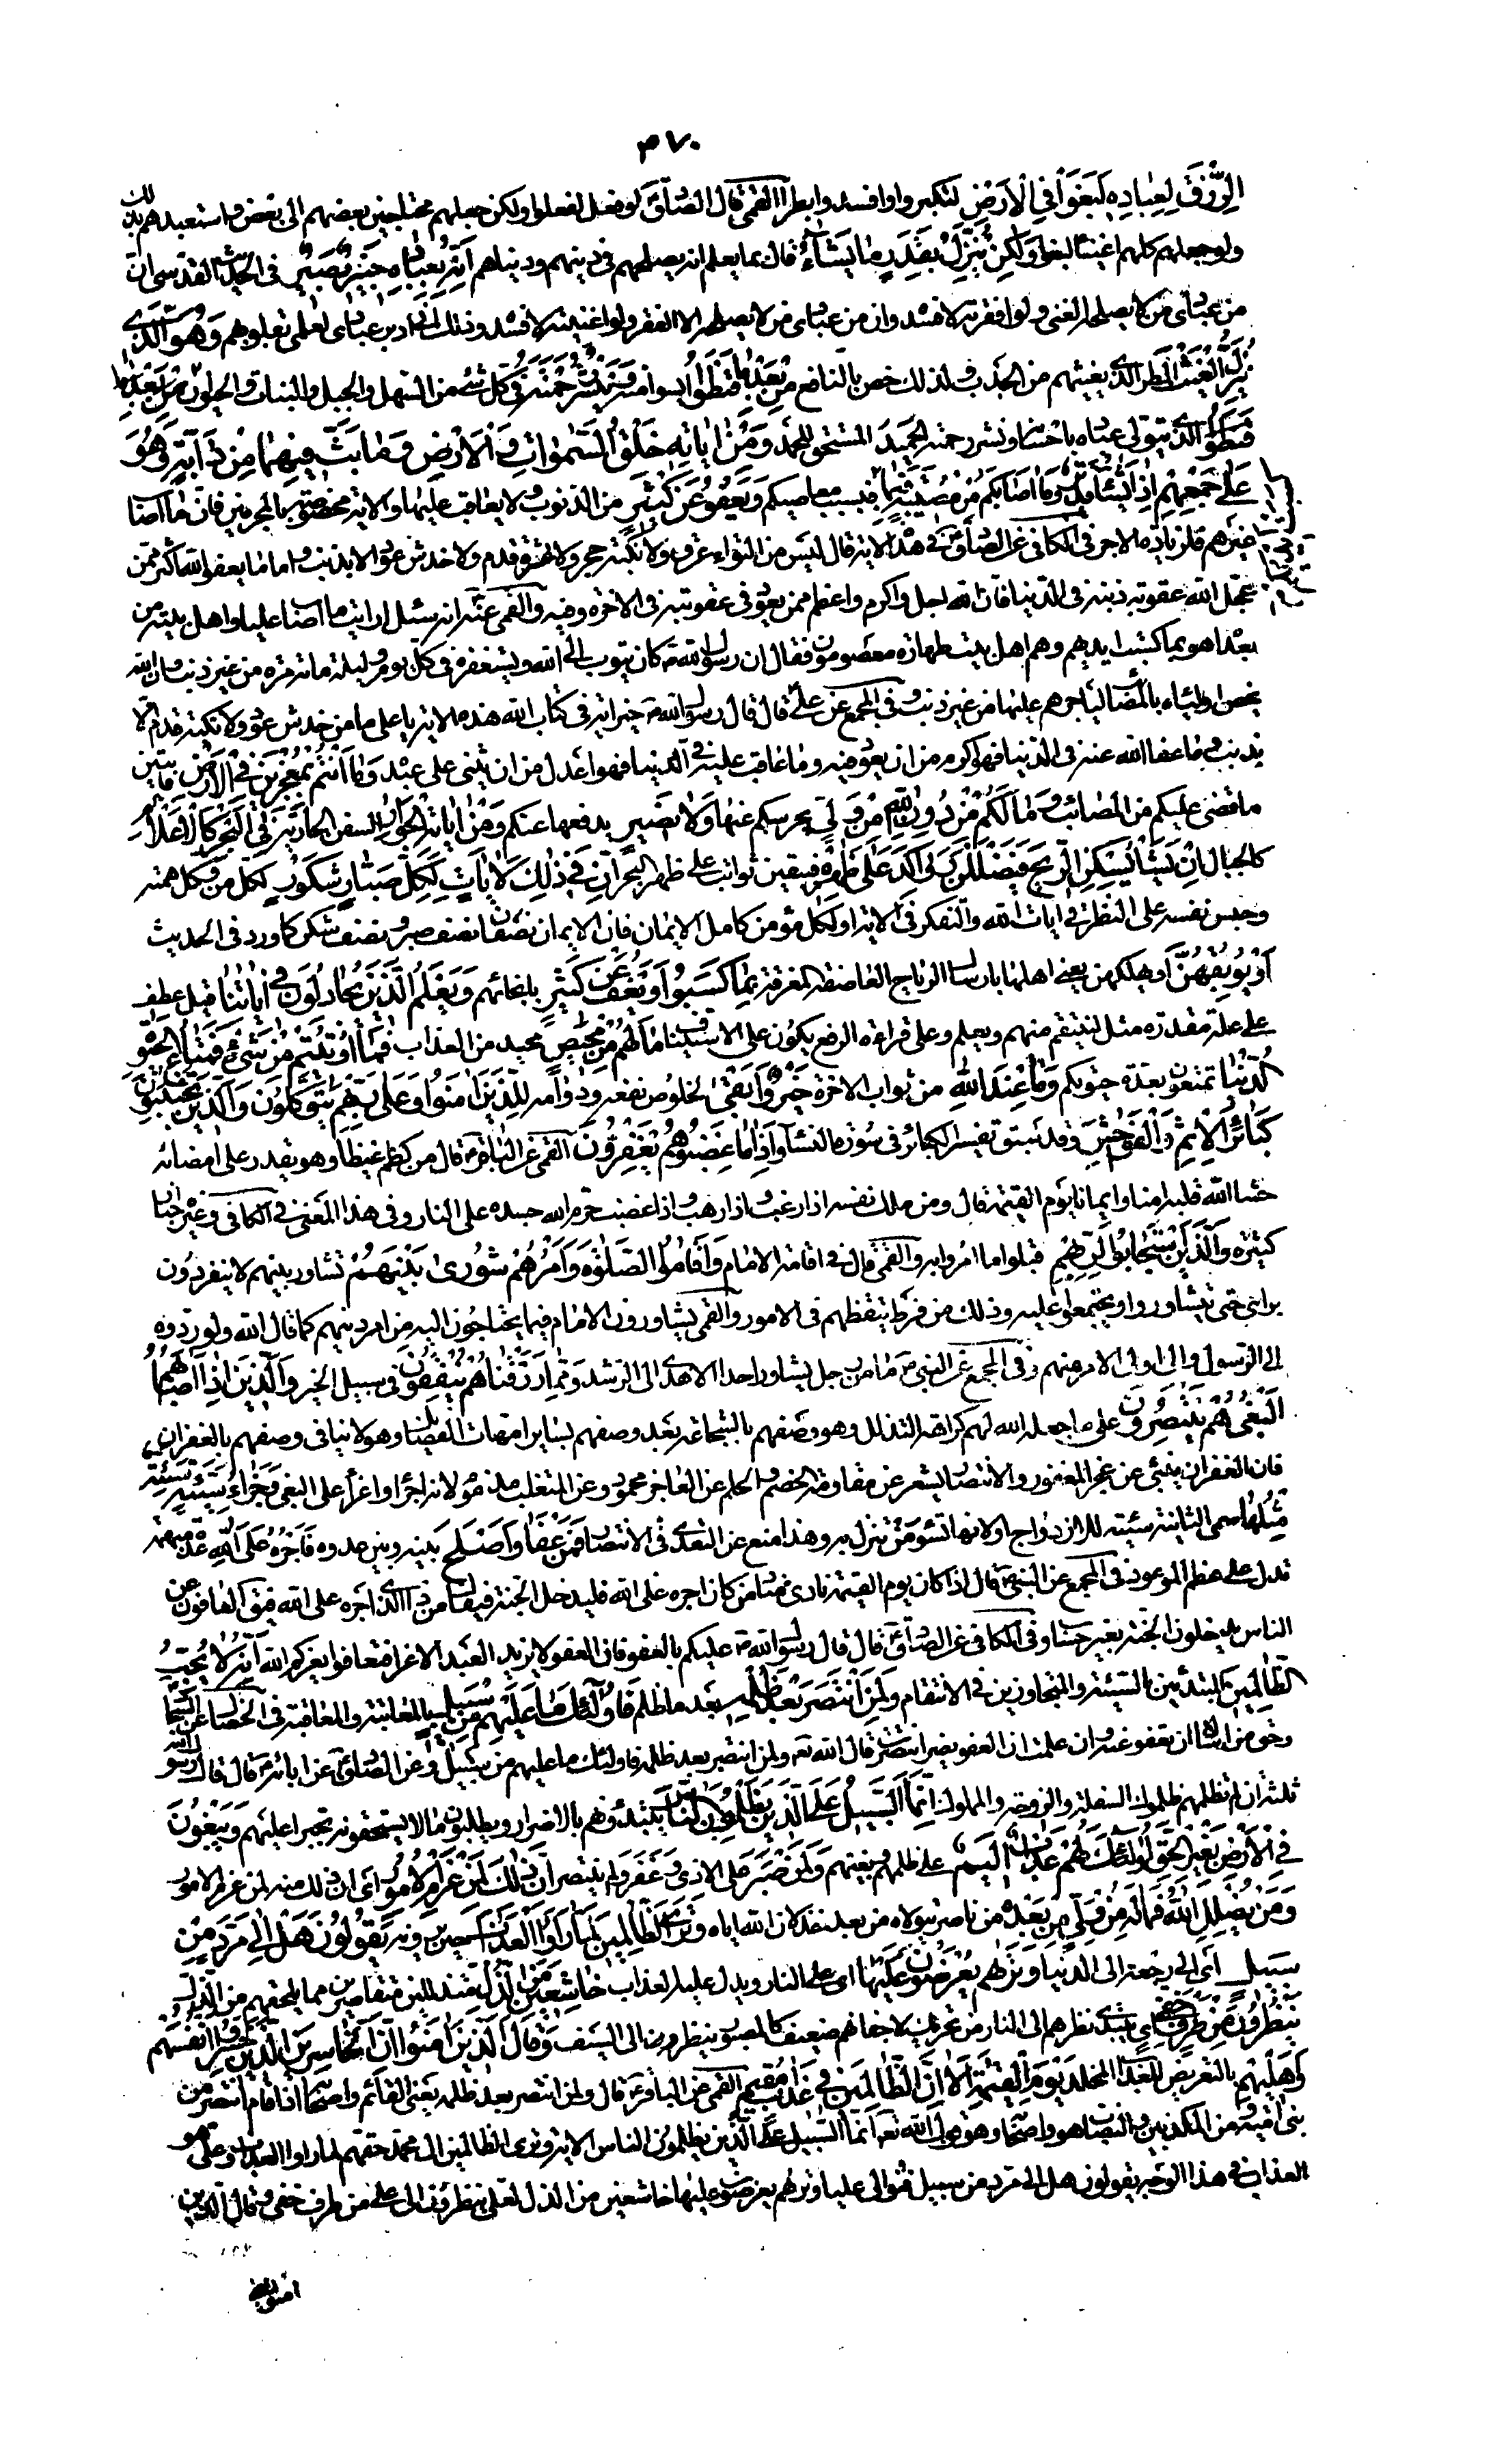 ٣٧٠
الرِّزْقَ لِعِبَادِهِ لَبَغَوْا فِي الْأَرْضِ لتكبروا وافسدوا بطرا القمى قال الصادق لو فعل لفعلوا ولكن جعلهم محتاجين بعضهم الى بعض و استعبدهم بذلك
ولو جعلهم كلهم اغنياء لبغوا وَلٰكِنْ يُنَزِّلُ بِقَدَرٍ مَا يَشَاءُ قال بما يعلم انه يصلحهم فى دينهم ودنياهم اِنَّهُ بِعِبَادِهِ خَبِيرٌ بَصِيرٌ فى الحديث القدسى ان
من عبادى من لا يصلحه الا الغنى ولو افقرته لافسده وان من عبادى من لا يصلحه الا الفقر ولو اغنيته لافسده وذلك انى ادبر عبادى لعلمى بقلوبهم وَهُوَ الَّذِي
يُنَزِّلُ الْغَيْثَ المطر الذى يغيثهم من الجدب ولذلك خص بالنافع مِنْ بَعْدِ مَا قَنَطُوا ايسوا منه وَيَنْشُرُ رَحْمَتَهُ فى كل شئ من السهل والجبل والنبات والحيوان مِنْ بَعْدِ مَا
قَنَطُوا الذى يتولى عباده باحسانه ونشر رحمته الْحَمِيدُ المستحق للحمد وَمِنْ اٰيَاتِهِ خَلْقُ السَّمٰوَاتِ وَالْاَرْضِ وَمَا بَثَّ فِيهِمَا مِنْ دَابَّةٍ وَهُوَ
عَلٰى جَمْعِهِمْ اِذَا يَشَاءُ قَدِيرٌ وَمَا اَصَابَكُمْ مِنْ مُصِيبَةٍ فَبِمَا فبسبب معاصيكم وَيَعْفُو عَنْ كَثِيرٍ من الذنوب ولا يعاقب عليها والاية مخصوصة بالمجرمين فان ما اصاب
غيرهم فلزيادة الاجر فى الكافى عن الصادق فى هذه الاية قال ليس من التواء عرق ولا نكبة حجر ولا عثرة قدم ولا خدش عود الا بذنب و اما ما يعفو الله اكثر فمن
عجل الله عقوبة ذنبه فى الدنيا فان الله اجل واكرم واعظم من يعود فى عقوبته فى الاخرة وفيه والقمى عنه انه سئل ارايت ما اصاب عليا واهل بيته من
بعده اهو بما كسبت ايديهم وهم اهل بيت طهارة معصومون فقال ان رسول الله ص كان يتوب الى الله ويستغفره فى كل يوم وليلة مائة مرة من غير ذنب ان الله
يخص اولياءه بالمصائب لياجرهم عليها من غير ذنب وفى المجمع عن على قال قال رسول الله ص خير اية فى كتاب الله هذه الاية يا على ما من خدش عود ولا نكبة قدم الا
بذنب وما عفا الله عنه فى الدنيا فهو اكرم من ان يعود فيه وما عاقب عليه فى الدنيا فهو اعدل من ان يثنى على عبده وَمَا اَنْتُمْ بِمُعْجِزِينَ فِي الْاَرْضِ فايتين
ما قضى عليكم من المصائب وَمَا لَكُمْ مِنْ دُونِ اللّٰهِ مِنْ وَلِيٍّ يحرسكم عنها وَلَا نَصِيرٍ يدفعها عنكم وَمِنْ اٰيَاتِهِ الْجَوَارِ السفن الجارية فِي الْبَحْرِ كَالْاَعْلَامِ
كالجبال اِنْ يَشَأْ يُسْكِنِ الرِّيحَ فَيَظْلَلْنَ رَوَاكِدَ عَلٰى ظَهْرِهِ فيبقين ثوابت على ظهر البحر اِنَّ فِي ذٰلِكَ لَاٰيَاتٍ لِكُلِّ صَبَّارٍ شَكُورٍ لكل من وكل همته
وحبس نفسه على النظر فى ايات الله والتفكر فى الائه او لكل مؤمن كامل الايمان فان الايمان نصفان نصف صبر ونصف شكر كما ورد فى الحديث
اَوْ يُوبِقْهُنَّ او يهلكهن يعنى اهلها بارسال الرياح العاصفة المغرقة بِمَا كَسَبُوا وَيَعْفُ عَنْ كَثِيرٍ بانجائهم وَيَعْلَمَ الَّذِينَ يُجَادِلُونَ فِي اٰيَاتِنَا قيل عطف
على علة مقدرة مثل لينتقم منهم ويعلم وعلى قراءة الرفع يكون على الاستيناف مَا لَهُمْ مِنْ مَحِيصٍ محيد من العذاب فَمَا اُوتِيتُمْ مِنْ شَيْءٍ فَمَتَاعُ الْحَيٰوةِ
الدُّنْيَا تمتعون به مدة حيوتكم وَمَا عِنْدَ اللّٰهِ من ثواب الاخرة خَيْرٌ وَاَبْقٰى لخلوص نفعه ودوامه لِلَّذِينَ اٰمَنُوا وَعَلٰى رَبِّهِمْ يَتَوَكَّلُونَ وَالَّذِينَ يَجْتَنِبُونَ
كَبَائِرَ الْاِثْمِ وَالْفَوَاحِشَ وقد سبق تفسير الكبائر فى سورة النساء وَاِذَا مَا غَضِبُوا هُمْ يَغْفِرُونَ القمى عن الباقر قال من كظم غيظا وهو يقدر على امضائه
حشا الله قلبه امنا وايمانا يوم القيمة قال ومن ملك نفسه اذا رغب و اذا رهب و اذا غضب حرم الله جسده على النار وفى هذا المعنى فى الكافى وغيره اخبار
كثيرة وَالَّذِينَ اسْتَجَابُوا لِرَبِّهِمْ قبلوا ما امروا به والقمى قال فى اقامة الامام وَاَقَامُوا الصَّلٰوةَ وَاَمْرُهُمْ شُورٰى بَيْنَهُمْ تشاور بينهم لا ينفردون
براى حتى يتشاوروا ويجتمعوا عليه وذلك من فرط تيقظهم فى الامور والقمى يشاورون الامام فيما يحتاجون اليه من امر دينهم كما قال الله ولو ردوه
الى الرسول والى اولى الامر منهم وفى المجمع عن النبى ص ما من رجل يشاور احدا الا هدى الى الرشد وَمِمَّا رَزَقْنَاهُمْ يُنْفِقُونَ فى سبيل الخير وَالَّذِينَ اِذَا اَصَابَهُمُ
الْبَغْيُ هُمْ يَنْتَصِرُونَ على ما جعله الله لهم كراهة التذلل وهو وصفهم بالشجاعة بعد وصفهم بسائر امهات الفضائل وهو لا ينافى وصفهم بالغفران
فان الغفران ينبئ عن عجز المغفور والانتصار يشعر عن مقاومة الخصم والحلم عن العاجز محمود وعن المتغلب مذموم لانه اجراء واغراء على البغى وَجَزَاءُ سَيِّئَةٍ سَيِّئَةٌ
مِثْلُهَا سمى الثانية سيئة للازدواج او لانها تسوء من تنزل به وهذا منع عن التعدى فى الانتصار فَمَنْ عَفَا وَاَصْلَحَ بينه وبين عدوه فَاَجْرُهُ عَلَى اللّٰهِ عدة مبهمة
تدل على عظم الموعود فى المجمع عن النبى ص قال اذا كان يوم القيمة نادى مناد من كان اجره على الله فليدخل الجنة فيقال من ذا الذى اجره على الله فيق العافون عن
الناس يدخلون الجنة بغير حساب وفى الكافى عن الصادق قال قال رسول الله ص عليكم بالعفو فان العفو لا يزيد العبد الا عزا فتعافوا يعزكم الله اِنَّهُ لَا يُحِبُّ
الظَّالِمِينَ المبتدئين بالسيئة والمتجاوزين فى الانتقام وَلَمَنِ انْتَصَرَ بَعْدَ ظُلْمِهِ بعد ما ظلم فَاُولٰئِكَ مَا عَلَيْهِمْ مِنْ سَبِيلٍ بالمعاتبة والمعاقبة فى الخصال عن السجاد
وحق من اساءك ان تعفو عنه وان علمت ان العفو يضر انتصرت قال الله تع ولمن انتصر بعد ظلمه فاولئك ما عليهم من سبيل وعن الصادق عن ابائه قال قال رسول الله
ثلثة ان لم تظلمهم ظلموك السفلة والزوجة والمملوك اِنَّمَا السَّبِيلُ عَلَى الَّذِينَ يَظْلِمُونَ النَّاسَ يبتدؤنهم بالاضرار ويطلبون ما لا يستحقونه تجبرا عليهم وَيَبْغُونَ
فِي الْاَرْضِ بِغَيْرِ الْحَقِّ اُولٰئِكَ لَهُمْ عَذَابٌ اَلِيمٌ على ظلمهم وبغيهم وَلَمَنْ صَبَرَ على الاذى وَغَفَرَ ولم ينتصر اِنَّ ذٰلِكَ لَمِنْ عَزْمِ الْاُمُورِ اى ان ذلك منه لمن عزم الامور
وَمَنْ يُضْلِلِ اللّٰهُ فَمَا لَهُ مِنْ وَلِيٍّ مِنْ بَعْدِهِ من ناصر يتولاه من بعد خذلان الله اياه وَتَرَى الظَّالِمِينَ لَمَّا رَاَوُا الْعَذَابَ حين يرونه يَقُولُونَ هَلْ اِلٰى مَرَدٍّ مِنْ
سَبِيلٍ اى الى رجعة الى الدنيا وَتَرٰيهُمْ يُعْرَضُونَ عَلَيْهَا اى على النار ويدل عليها العذاب خَاشِعِينَ مِنَ الذُّلِّ متذللين متقاصرين مما يلحقهم من الذل
يَنْظُرُونَ مِنْ طَرْفٍ خَفِيٍّ اى يبتدى نظرهم الى النار من تحريك لاجفانهم ضعيف كالمصبور ينظر الى السيف وَقَالَ الَّذِينَ اٰمَنُوا اِنَّ الْخَاسِرِينَ الَّذِينَ خَسِرُوا اَنْفُسَهُمْ
وَاَهْلِيهِمْ بالتعريض للعذاب المخلد يَوْمَ الْقِيٰمَةِ اَلَا اِنَّ الظَّالِمِينَ فِي عَذَابٍ مُقِيمٍ القمى عن الباقر قال ولمن انتصر بعد ظلمه يعنى القائم واصحابه اذا قام انتصر من
بنى امية ومن المكذبين والنصاب هو واصحابه وهو قول الله تع انما السبيل على الذين يظلمون الناس الاية وترى الظالمين ال محمد حقهم لما راوا العذاب وعلى هو
العذاب فى هذا الوجه يقولون هل الى مرد من سبيل فنوالى عليا وتريهم يعرضون عليها خاشعين من الذل لعلى ينظرون الى على من طرف خفى وقال الذين
امنوا يعنى